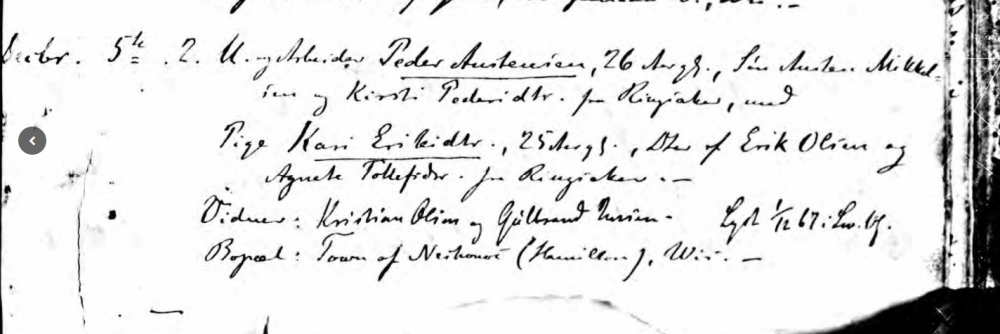 Decbr. 5te 2. U. og Arbeider Peder Austensen, 26 Aar gl., Søn Austen Mikkel-
sen og Kirsti Pedersdtr. fra Ringsaker, med
Pige Kari Eriksdtr., 25 Aar gl., Dter af Erik Olsen og
Agnete Tollefsdtr. fra Ringsaker. —
Vidner: Kristian Olsen og Gulbrand - Lyst 1/12 67 i
Bopæl: Town of Neshonoc (Hamilton), Wis. —